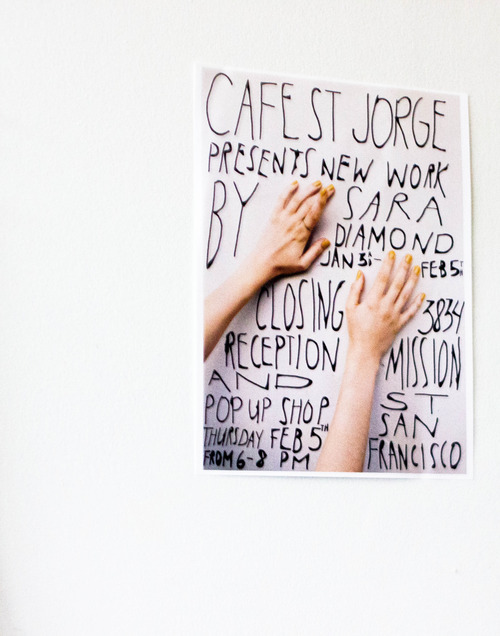 CAFE ST JORGE
PRESENTS NEW WORK
BY SARA
DIAMOND
JAN 3
FEB 5TH
CLOSING
RECEPTION
AND
POP UP SHOP
THURSDAY FEB 5TH
FROM 6-8 PM
3834
MISSION
ST
SAN
FRANCISCO